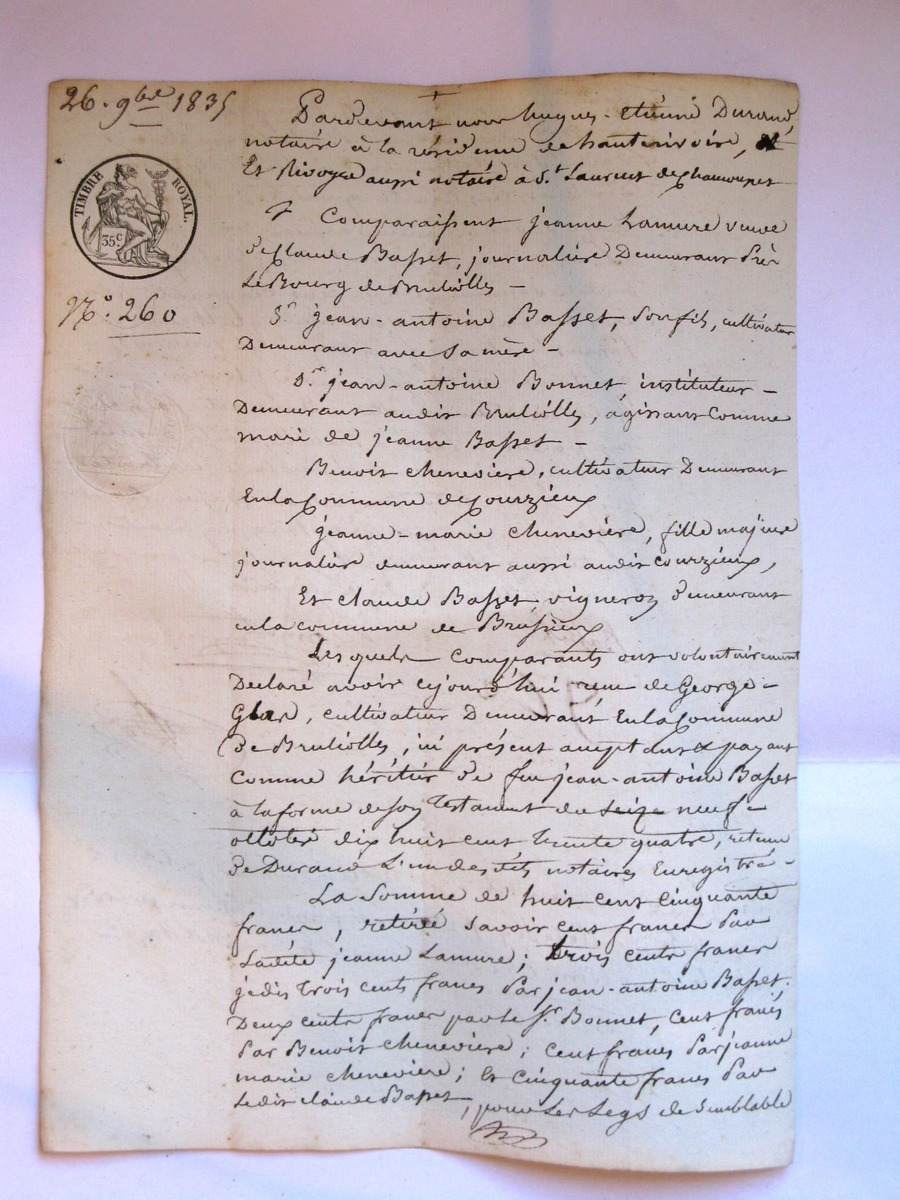 26. 9bre 1835
TIMBRE ROYAL.
35c
N°. 260
Pardevant nous hugues-étienne Durand,
notaire à la résidence de hauterivoire, et
Et Rivoyre aussi notaire à St. Laurent de Chamousset
Comparaissent jeanne Lamure veuve
de Claude Basset, journalière Demeurant Près
Le Bourg de Brullioles –
Sr jean-antoine Basset, son fils, cultivateur
Demeurant avec sa mère –
Sr. jean-antoine Bonnet, instituteur –
Demeurant audit Brullioles, agissant Comme
mari de jeanne Basset –
Benoit chenevière, cultivateur Demeurant
En la Commune de Courzieux
jeanne-marie chenevière, fille majeure
journalière demeurant aussi audit courzieux,
Et claude Basset, vigneron demeurant
en la commune de Brussieux
Lesquels comparants ont volontairement
Déclaré avoir cejourd'hui reçu de George –
cultivateur Demeurant En la Commune
de Brullioles, ici présent acceptant & payant
Comme héritier de feu jean-antoine Basset
à la forme de son Testament du seize neuf –
octobre dix huit cent trente quatre, retenu
de Durand L'un des dits notaires Enregistré –
La Somme de huit cent cinquante
francs, retirée savoir cent francs Par
Ladite jeanne Lamure; trois cents francs
je dis trois cents francs Par jean-antoine Basset;
Deux cents francs par le sr. Bonnet, Cent francs
Par Benoit Chenevière; Cent francs Par jeanne
marie chenevière; Et Cinquante francs Par
Ledit claude Basset, pour Les Legs de semblable